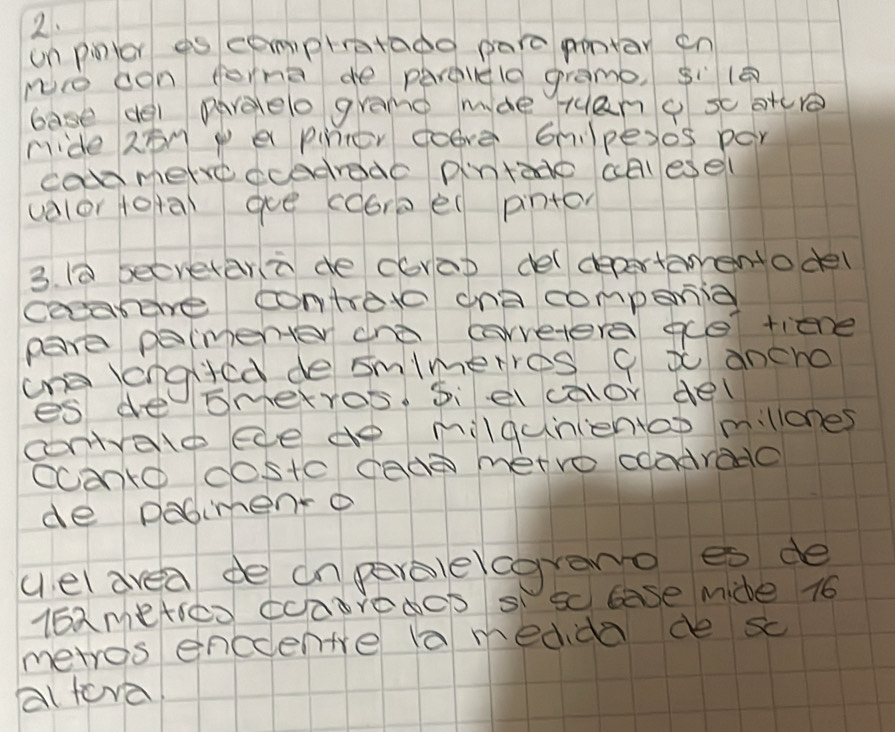 2.
un pintor es comptratado para pintar en
muro con forma de paralelo gramo, si la
base del paralelo gramo mide m y su atura
mide m y el pintor cobra 6milpesos por
cada metro cuadrado pintado cual esel
valor total que cobra el pintor
3. la secretaria de obras del departamento del
contrato una compañia
para paimentar una carretera que tiene
una longitud de 5milmetros y su ancho
es de 5metros. Si el valor del
contrato fue de milquinientos millones
cuanto costo cada metro cuadrado
de pabimento
4. el area de un paralelogramo es de
152 metros cuadrados si su base mide 16
metros encuentre la medida de su
altura.